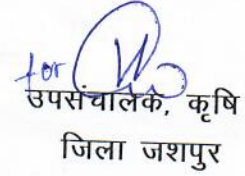 for
उपसंचालक, कृषि
जिला जशपुर